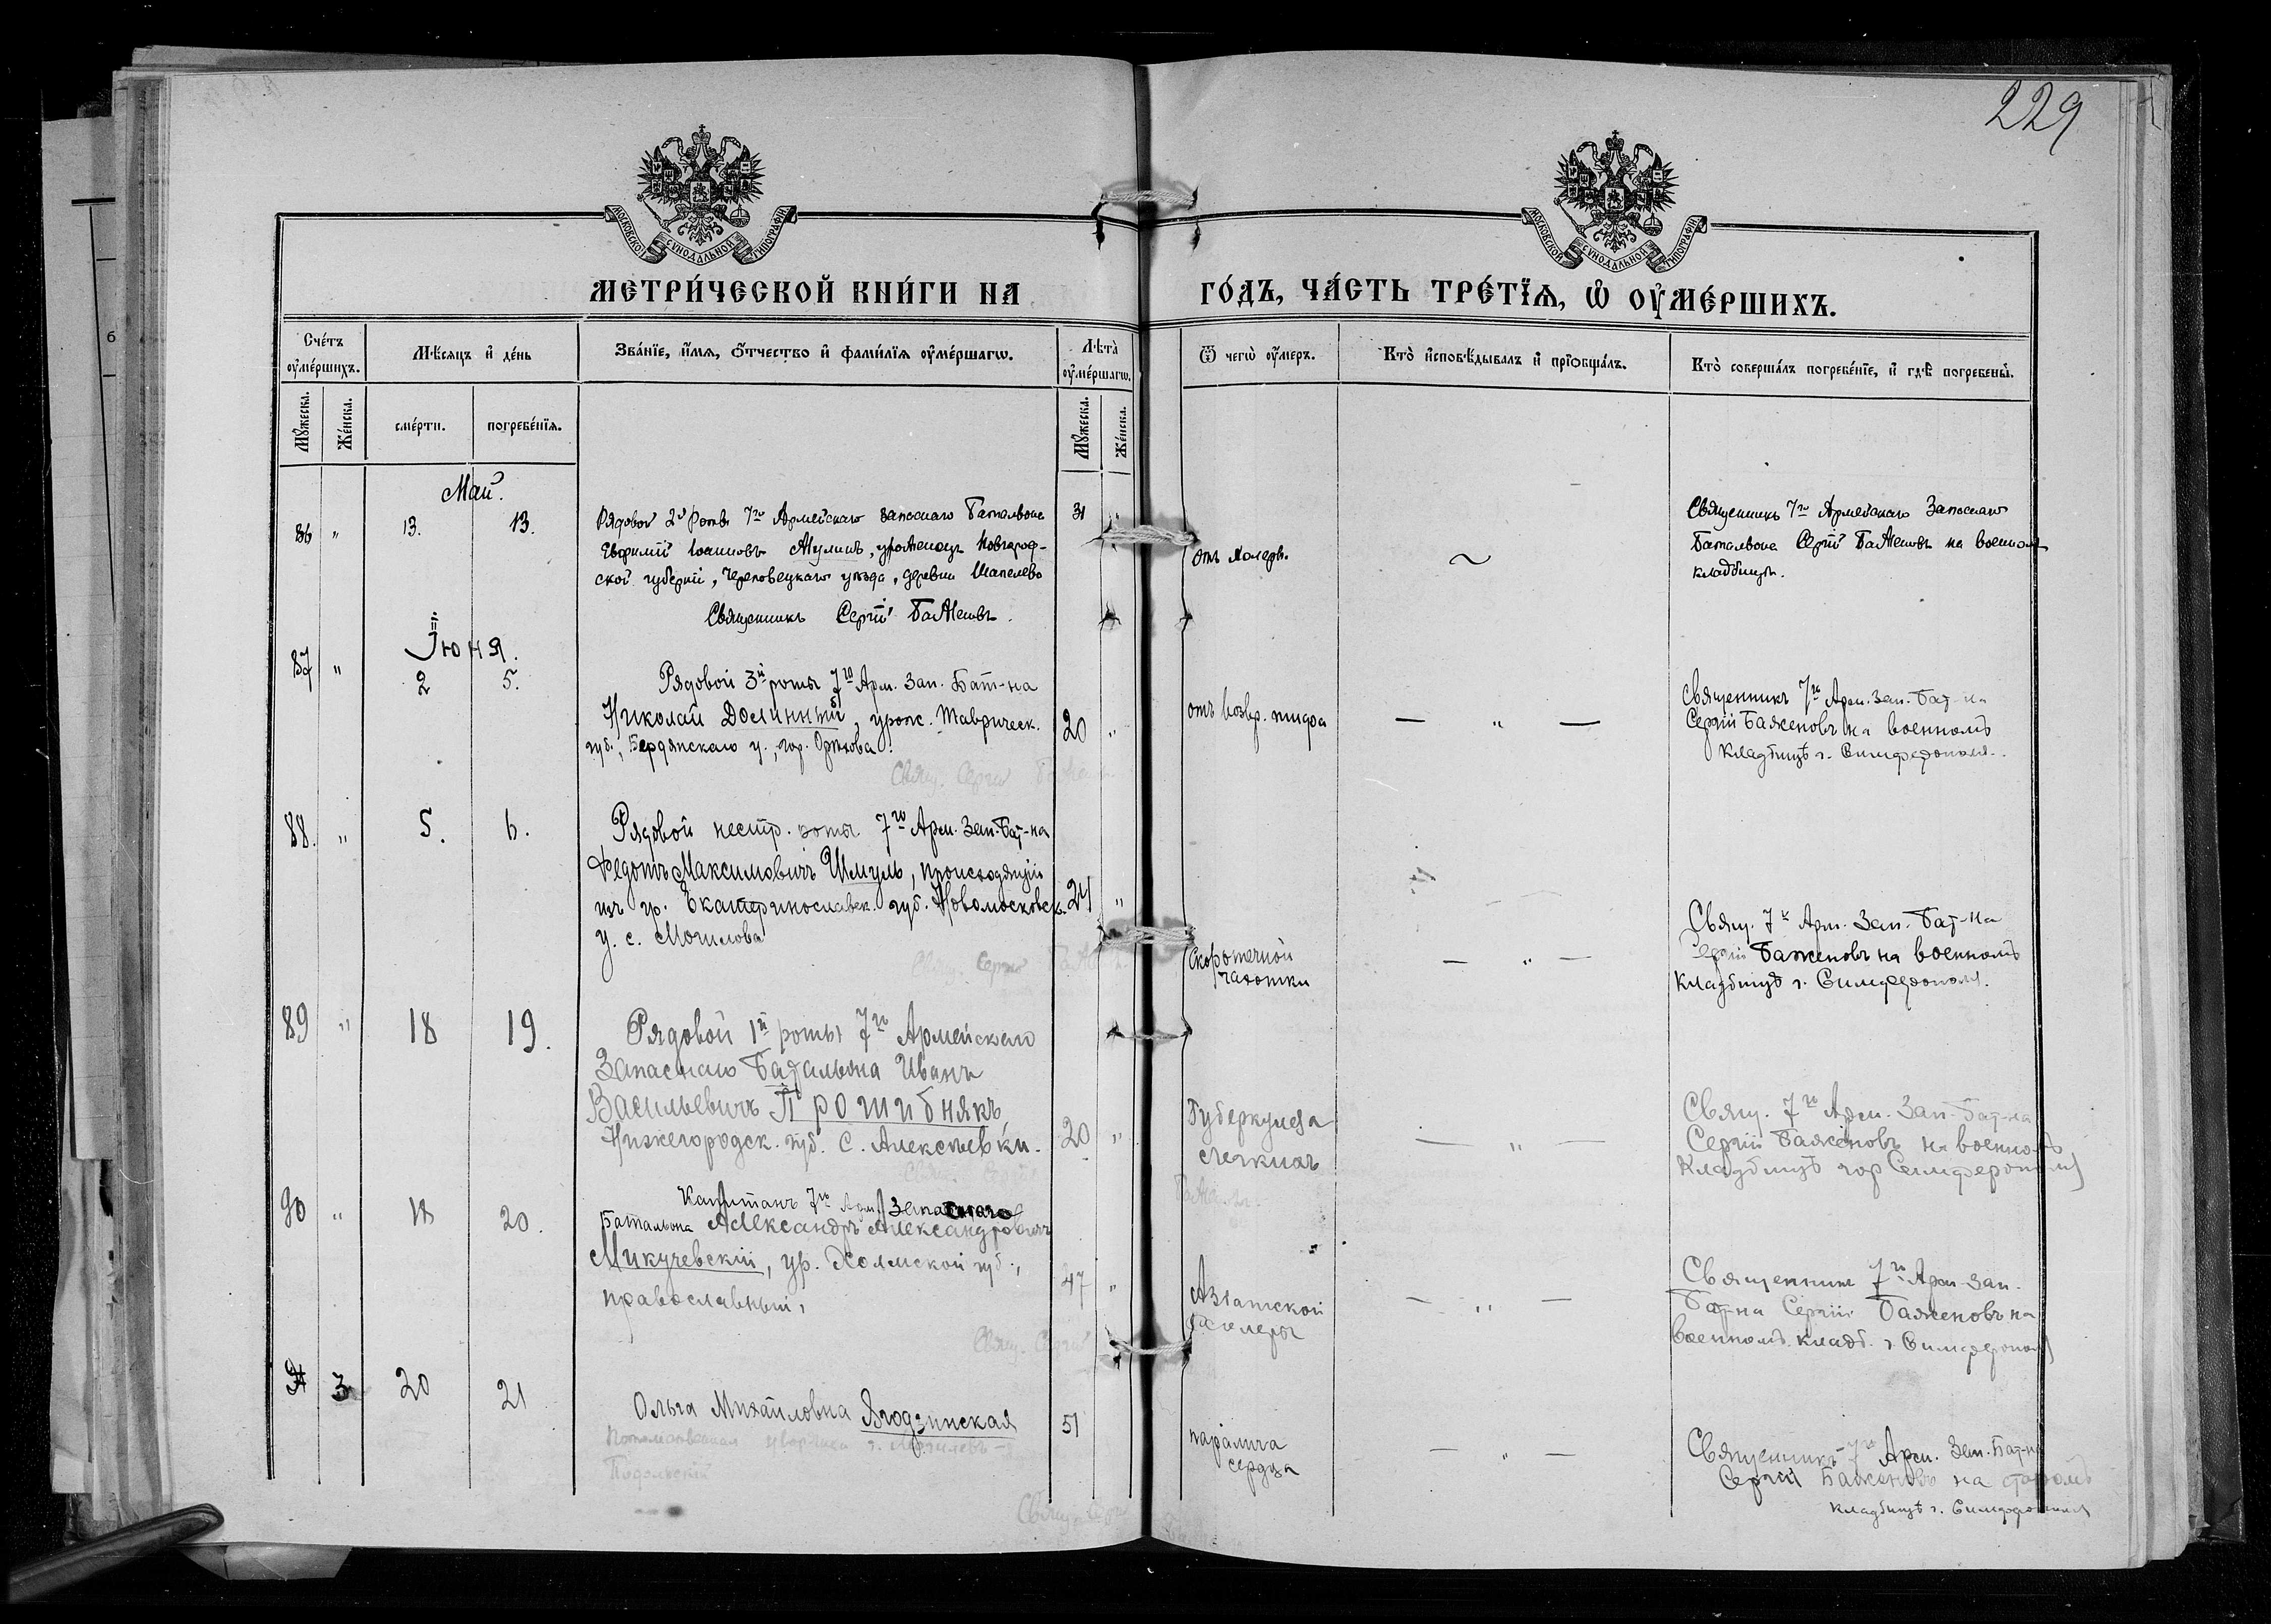 229
МОСКОВСКОЙ СУНОДАЛЬНОЙ ТИПОГРАФІИ
МОСКОВСКОЙ СУНОДАЛЬНОЙ ТИПОГРАФІИ
МЕТРИ́ЧЕСКОЙ КНИ́ГИ НА
ГО́ДЪ, ЧА́СТЬ ТРЕ́ТЇѦ, Ѡ҆ ОУ҆МЕ́РШИХЪ.
Сче́тъ оу҆ме́ршихъ.
Мѣ́сяцъ и҆ де́нь
Зва́нїе, и҆́мѧ, ѻ҆́тчество и҆ фами́лїѧ оу҆ме́ршагѡ.
Лѣта̀ оу҆ме́ршагѡ.
Ѿ чегѡ̀ оу҆́меръ.
Кто̀ и҆сповѣ́дывалъ и҆ прїѡбща́лъ.
Кто̀ соверша́лъ погребе́нїе, и҆ гдѣ̀ погребены̀.
Мꙋ́жеска.
Же́нска.
сме́рти.
погребе́нїѧ.
Мꙋ́жеска.
Же́нска.
Май.
86 " 13. 13.
Рядовой 2й роты 7го Армейскаго запаснаго Баталіона
Евфимій Іоанновъ уроженецъ Новгород-
ской губерніи, Череповецкаго уѣзда, деревни Шапелево
Священникъ Сергій Баженовъ.
31 "
отъ холеры.
~
Священникъ 7го Армейскаго Запаснаго
Баталіона Сергій Баженовъ на военномъ
кладбищѣ.
Іюня.
87 " 2 5.
Рядовой 3й роты 7го Арм. Зап. Бат-на
Николай Долинный, урож. Таврическ.
губ., Бердянскаго у., гор. Орѣхова.
Свящ. Сергій Баженовъ
20 "
отъ возвр. тифа
— " —
Священникъ 7го Арм. Зап. Бат-на
Сергій Баженовъ на военномъ
кладбищѣ г. Симферополя.
88. " 5. 6.
Рядовой нестр. роты 7го Арм. Зап. Бат-на
Федотъ Максимовичъ Шмуль, происходящій
изъ гр. Екатеринославск. губ. Новомосковск.
у. с. Могилова
Свящ. Сергій Баженовъ
24 "
Скоротечной
чахотки
— " —
Свящ. 7го Арм. Зап. Бат-на
Сергій Баженовъ на военномъ
кладбищѣ г. Симферополя.
89 " 18 19.
Рядовой 1й роты 7го Армейскаго
Запаснаго Баталіона Иванъ
Васильевичъ Прошибнякъ
Нижегородск. губ. с. Алексѣевки.
Свящ. Сергій
Баженовъ
20 "
Туберкулеза
легкихъ
— " —
Свящ. 7го Арм. Зап. Бат-на
Сергій Баженовъ на военномъ
Кладбищѣ гор Симферополя
90 " 18 20.
Капитанъ 7го Арм. Запаснаго
Баталіона Александръ Александровичъ
Микучевскій, ур. Холмской губ.,
православный,
Свящ. Сергій
47 "
Азіатской
холеры
— " —
Священникъ 7го Арм. Зап.
Бат-на Сергій Баженовъ на
военномъ кладб. г. Симферополя
3 20 21
Ольга Михайловна Ягодзинская
Потомственная дворянка г. Могилевъ-
Подольскій
Свящ. Сергій
51
паралича
сердца
— " —
Священникъ 7го Арм. Зап. Бат-на
Сергій Баженовъ на старомъ
кладбищѣ г. Симферополя